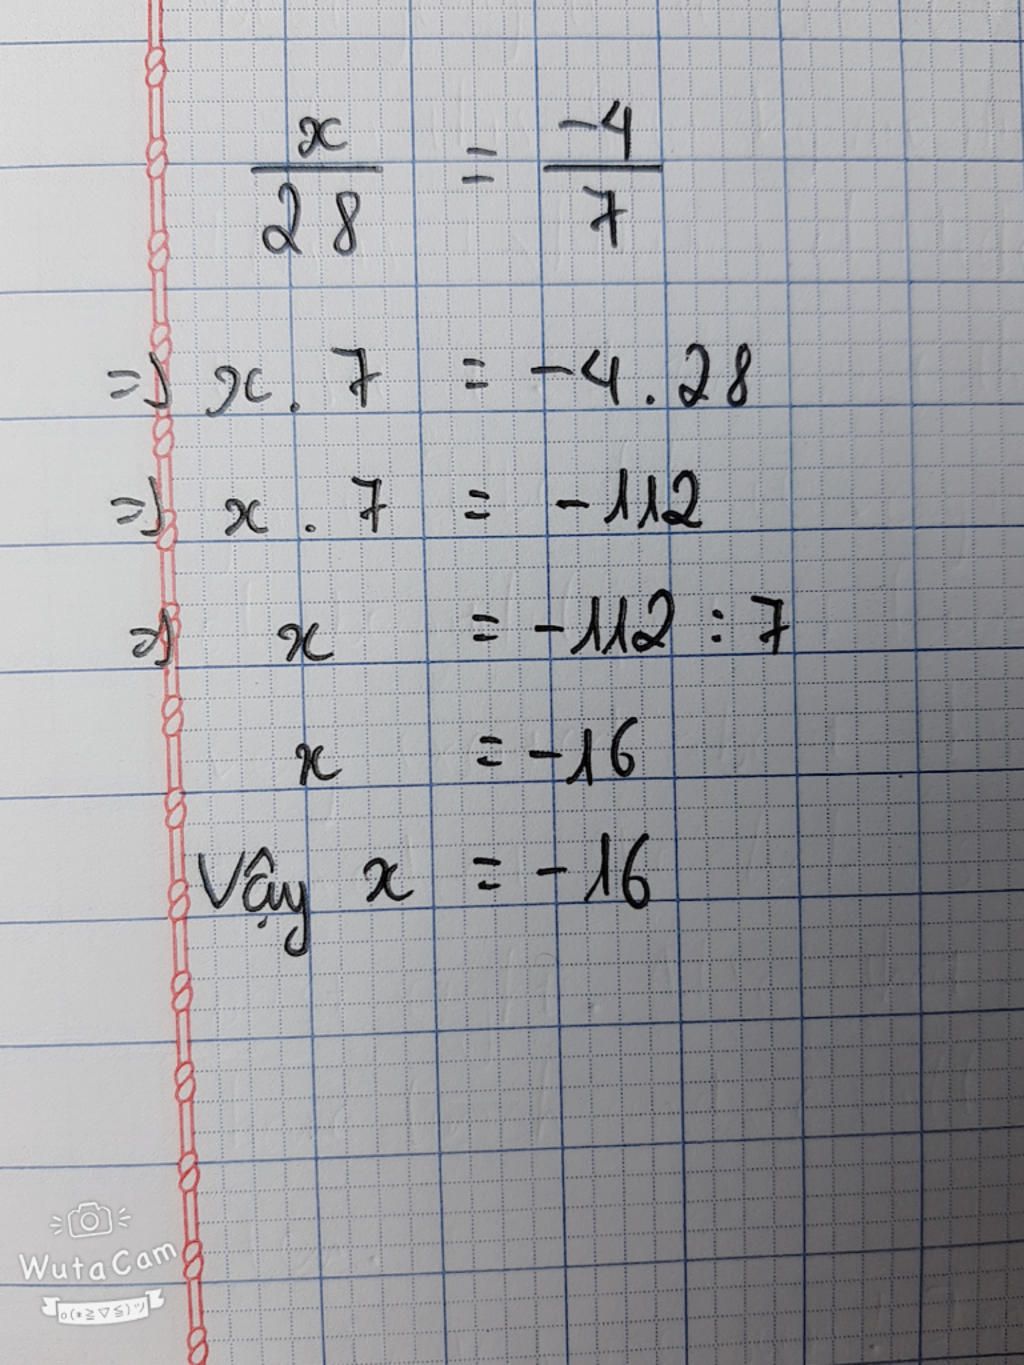 x/28 = -4/7
=> x . 7 = -4 . 28
=> x . 7 = -112
=> x = -112 : 7
x = -16
Vậy x = -16
WutaCam
o(*≧▽≦)ツ